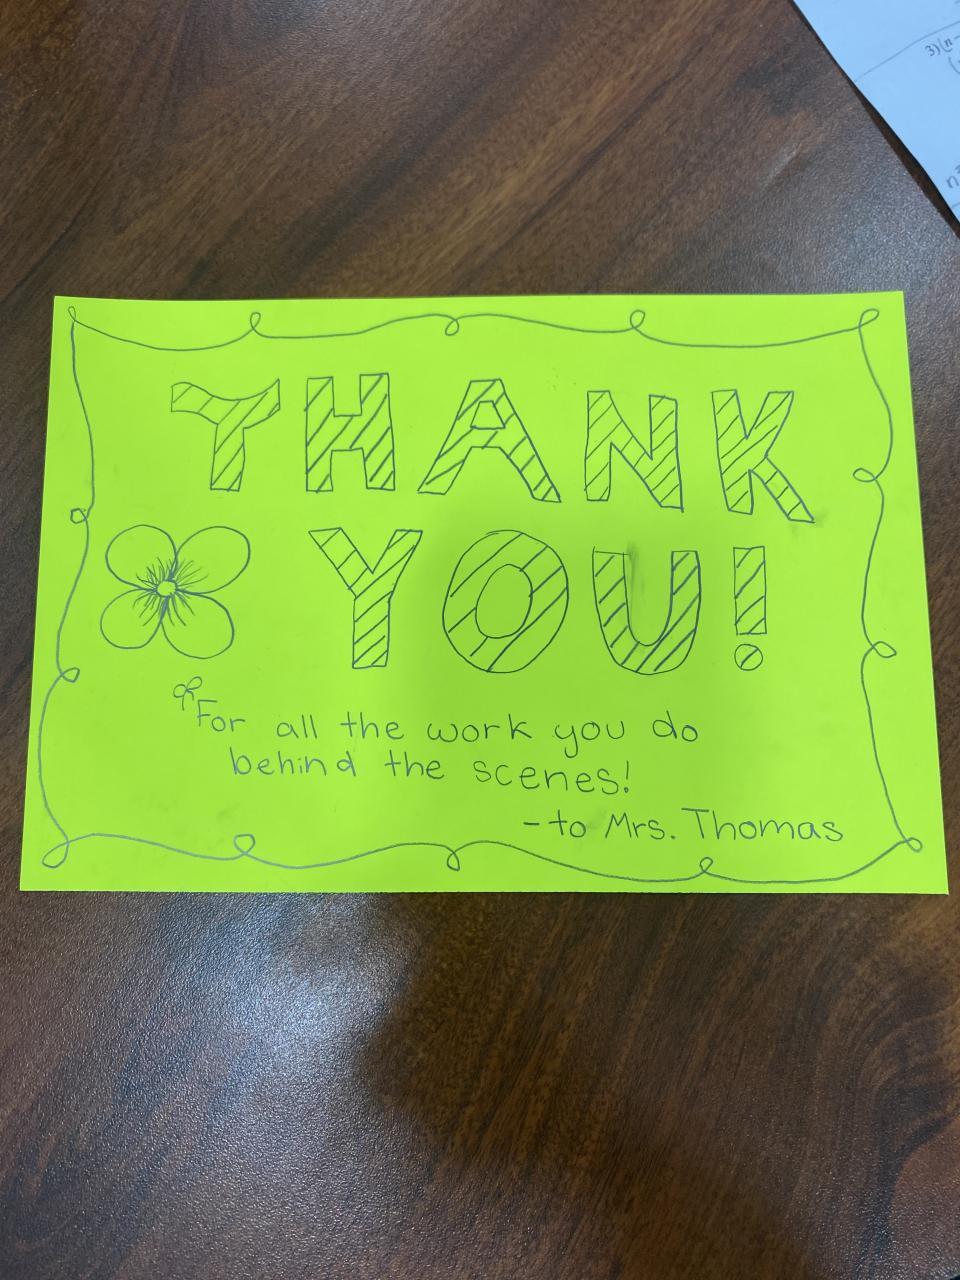 THANK
YOU!
For all the work you do
behind the scenes!
- to Mrs. Thomas
3)(n-